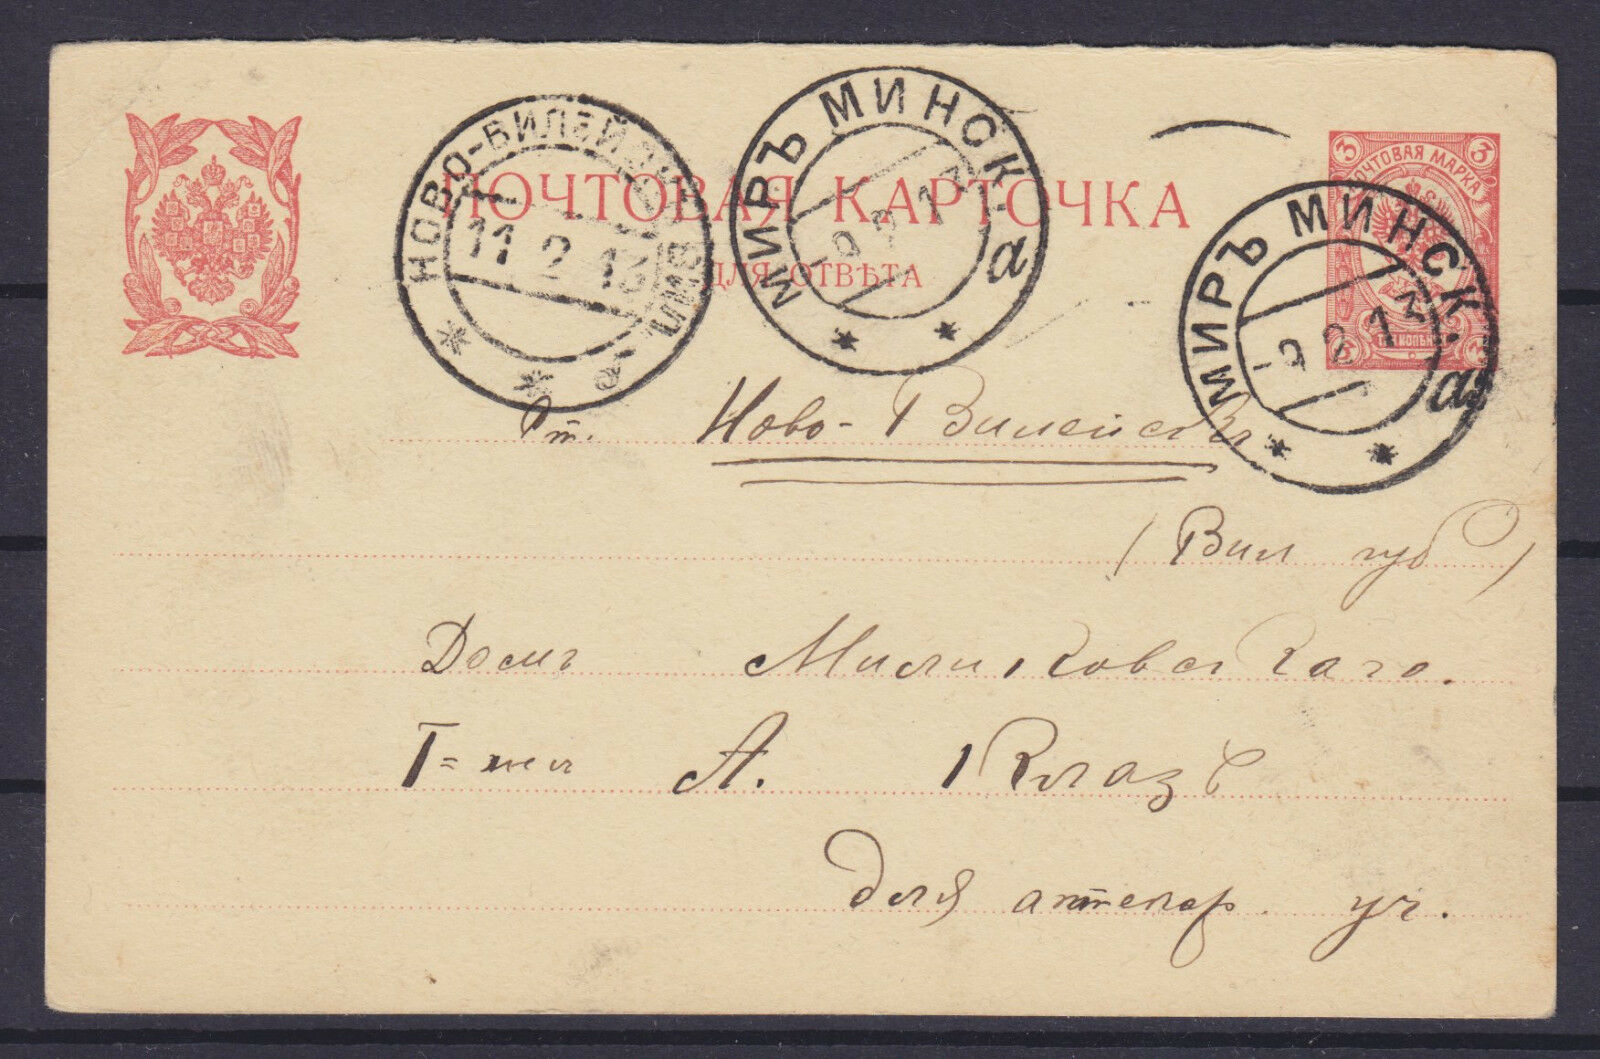 ПОЧТОВАЯ КАРТОЧКА
ДЛЯ ОТВѢТА
НОВО-ВИЛЕЙСКЪ ВИЛ.
11 2 13
б
МИРЪ МИНСК.
9 2 13
а
3 ПОЧТОВАЯ МАРКА 3
3 ТРИ КОПѢЙКИ 3
МИРЪ МИНСК.
9 2 13
а
Ст. Ново-Вилейскъ
(Вил губ)
Домъ Миликовскаго.
Г=жѣ А. Клазъ
для аптекар. уч.